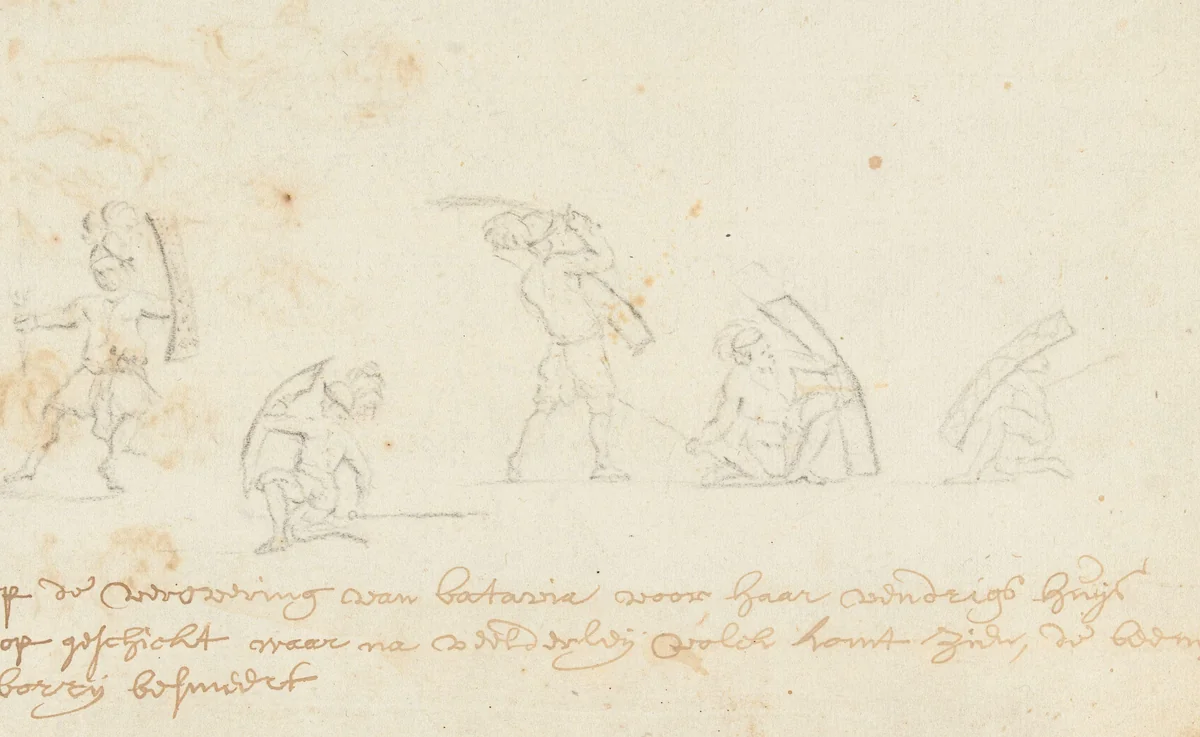 op de verovering van batavia voor haar vendrigs huys
op geschickt waar na veelderley volck komt zien, de been
borry besmeert